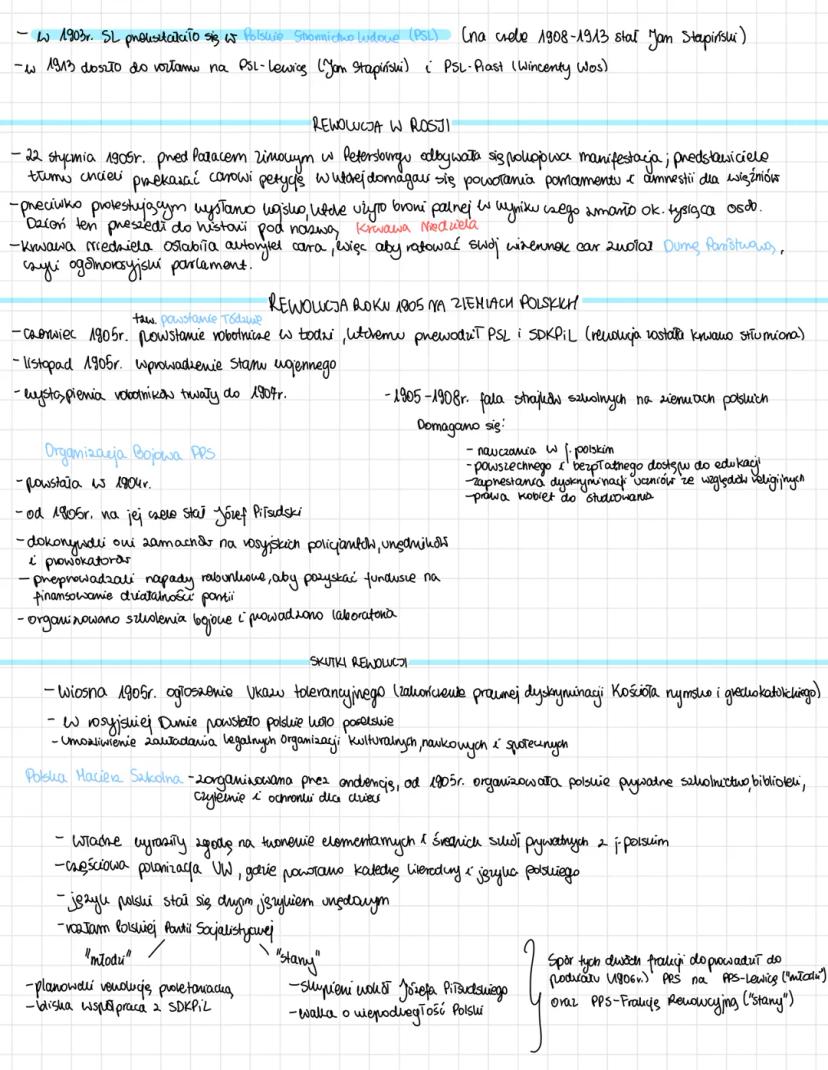 - w 1903r. SL przekształciło się w Polskie Stronnictwo Ludowe (PSL) (na czele 1908-1913 stał Jan Stapiński)
- w 1913 doszło do rozłamu na PSL-Lewicę (Jan Stapiński) i PSL-Piast (Wincenty Wos)
REWOLUCJA W ROSJI
- 22 stycznia 1905r. pred Pałacem Zimowym w Petersburgu odbywała się pokojowa manifestacja; predstawiciele
tłumu chcieli przekazać carowi petycję w której domagali się powołania parlamentu i amnestii dla więźniów
- przeciwko protestującym wysłano wojsko, które użyło broni palnej w wyniku czego zmarło ok. tysiąca osób.
Dzień ten przeszedł do historii pod nazwą Krwawa Niedziela
- Krwawa niedziela osłabiła autorytet cara, więc aby ratować swój wizerunek car zwołał Dumę Państwową,
czyli ogólnorosyjski parlament.
REWOLUCJA ROKU 1905 NA ZIEMIACH POLSKICH
tzw. powstanie łódzkie
- czerwiec 1905r. powstanie robotnicze w Łodzi, któremu przewodził PSL i SDKPiL (rewolucja została krwawo stłumiona)
- listopad 1905r. wprowadzenie stanu wojennego
- wystąpienia robotników trwały do 1907r.
- 1905-1908r. fala strajków szkolnych na ziemiach polskich
Domagano się:
- nauczania w j. polskim
- powszechnego i bezpłatnego dostępu do edukacji
- zaprzestania dyskryminacji uczniów ze względów religijnych
- prawa kobiet do studiowania
Organizacja Bojowa PPS
- powstała w 1904r.
- od 1905r. na jej czele stał Józef Piłsudski
- dokonywali oni zamachów na rosyjskich policjantów, urzędników
i prowokatorów
- przeprowadzali napady rabunkowe, aby pozyskać fundusze na
finansowanie działalności partii
- organizowano szkolenia bojowe i prowadzono laboratoria
SKUTKI REWOLUCJI
- Wiosna 1905r. ogłoszenie Ukazu tolerancyjnego (zakończenie prawnej dyskryminacji Kościoła rzymsko i greckokatolickiego)
- W rosyjskiej Dumie powstało polskie koło poselskie
- Umożliwienie zakładania legalnych organizacji kulturalnych, naukowych i społecznych
Polska Macierz Szkolna - zorganizowana przez endencję, od 1905r. organizowała polskie prywatne szkolnictwo, biblioteki,
czytelnie i ochronki dla dzieci
- Władze wyraziły zgodę na tworzenie elementarnych i średnich szkół prywatnych z j. polskim
- częściowa polonizacja UW, gdzie powołano katedrę literatury i języka polskiego
- język polski stał się drugim językiem urzędowym
- rozłam Polskiej Partii Socjalistycznej
"młodzi"
- planowali rewolucję proletariacką
- bliska współpraca z SDKPiL
"starzy"
- skupieni wokół Józefa Piłsudskiego
- walka o niepodległość Polski
Spór tych dwóch frakcji doprowadził do
podziału (1906r.) PPS na PPS-Lewicę ("młodzi")
oraz PPS-Frakcję Rewolucyjną ("starzy")